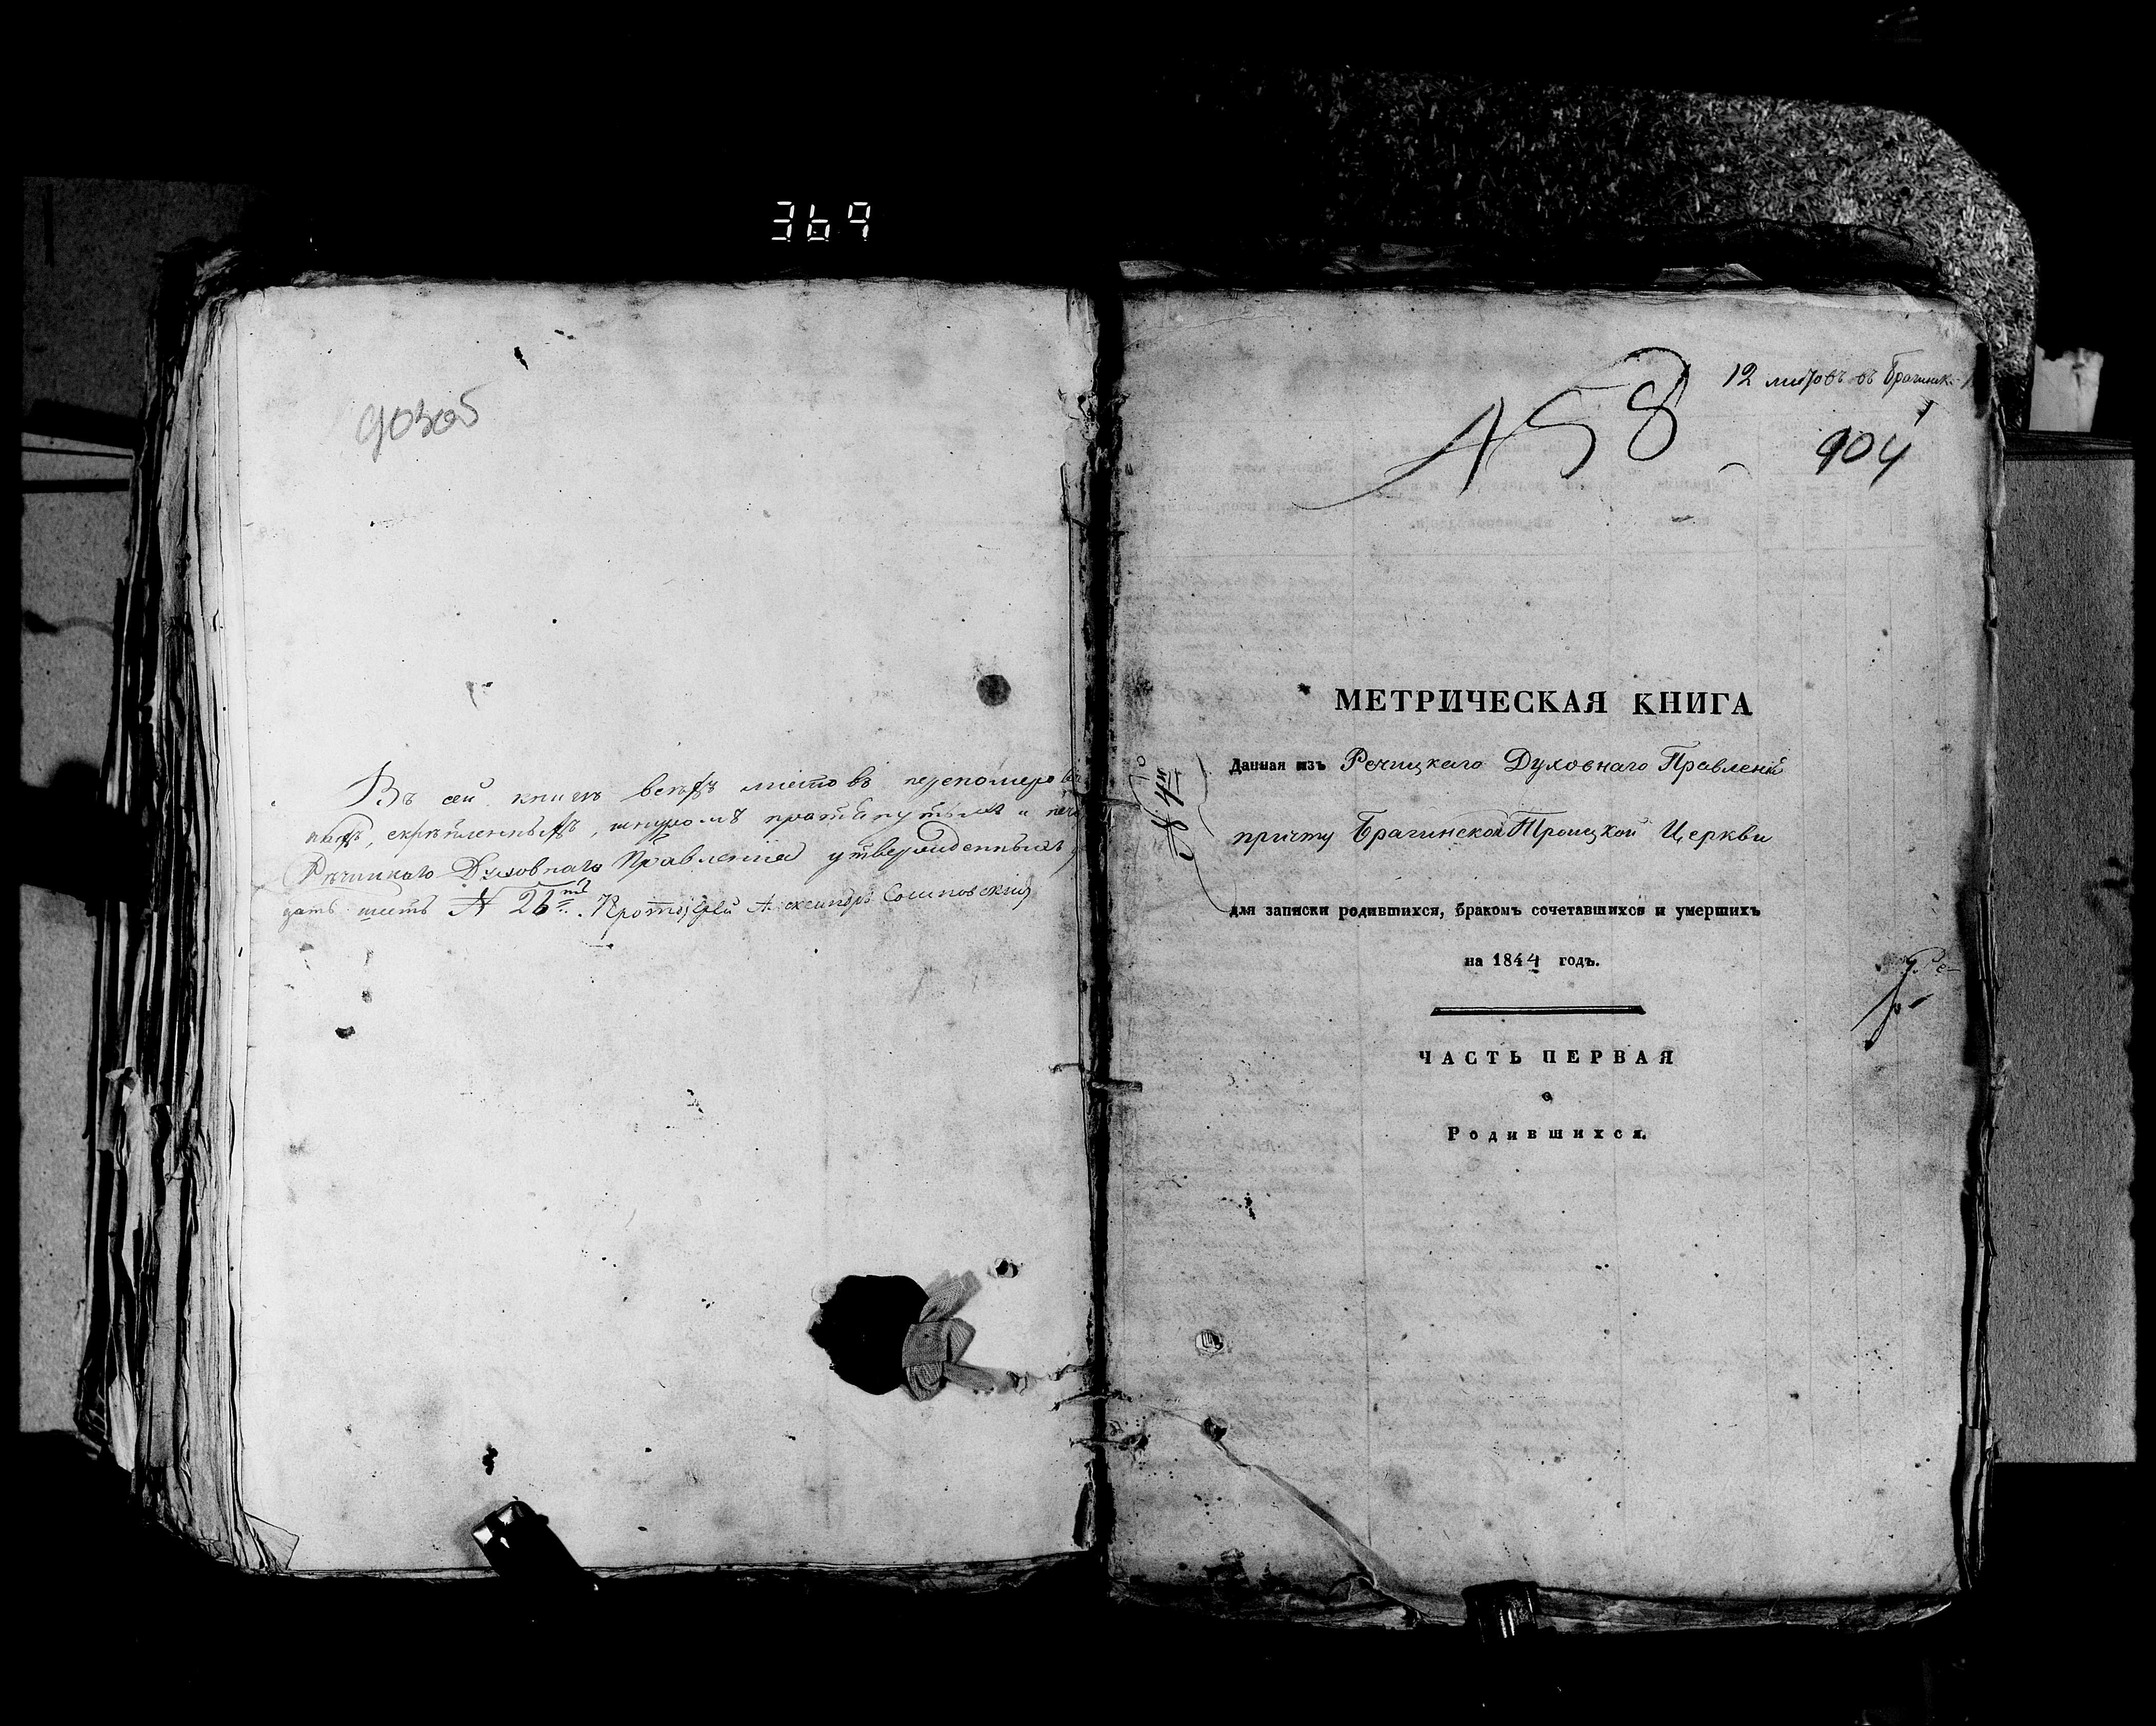 369
903об
Въ сей книгѣ всѣхъ листовъ перенумерован
ныхъ, скрѣпленныхъ, шнуромъ протянутыхъ и
Рѣчицкаго Духовнаго Правленія утвержденныхъ
дцать шесть № 26ть. Протоіерей Александръ
12 листовъ въ Брагинск
А 58
904
МЕТРИЧЕСКАЯ КНИГА
Данная изъ Речицкаго Духовнаго Правленія
причту Брагинской Троицкой Церкви
для записки родившихся, бракомъ сочетавшихся и умершихъ
на 1844 годъ.
ЧАСТЬ ПЕРВАЯ
о
Родившихся.